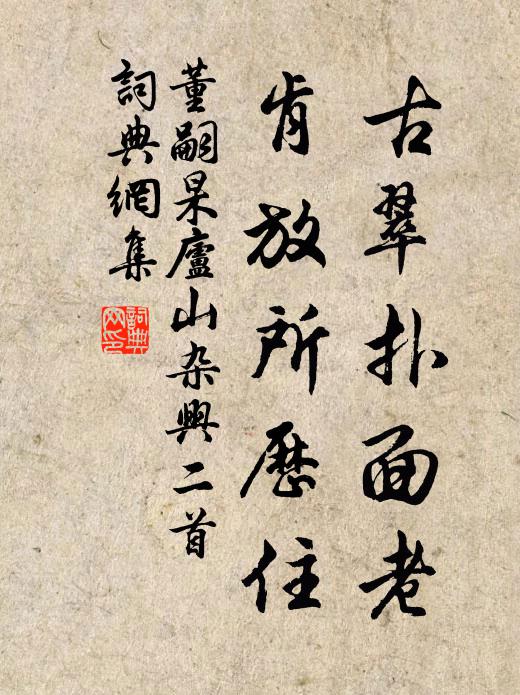 古翠扑面老
肯放所歷住
董嗣杲廬山杂興二首
詞典網集
詞典网印